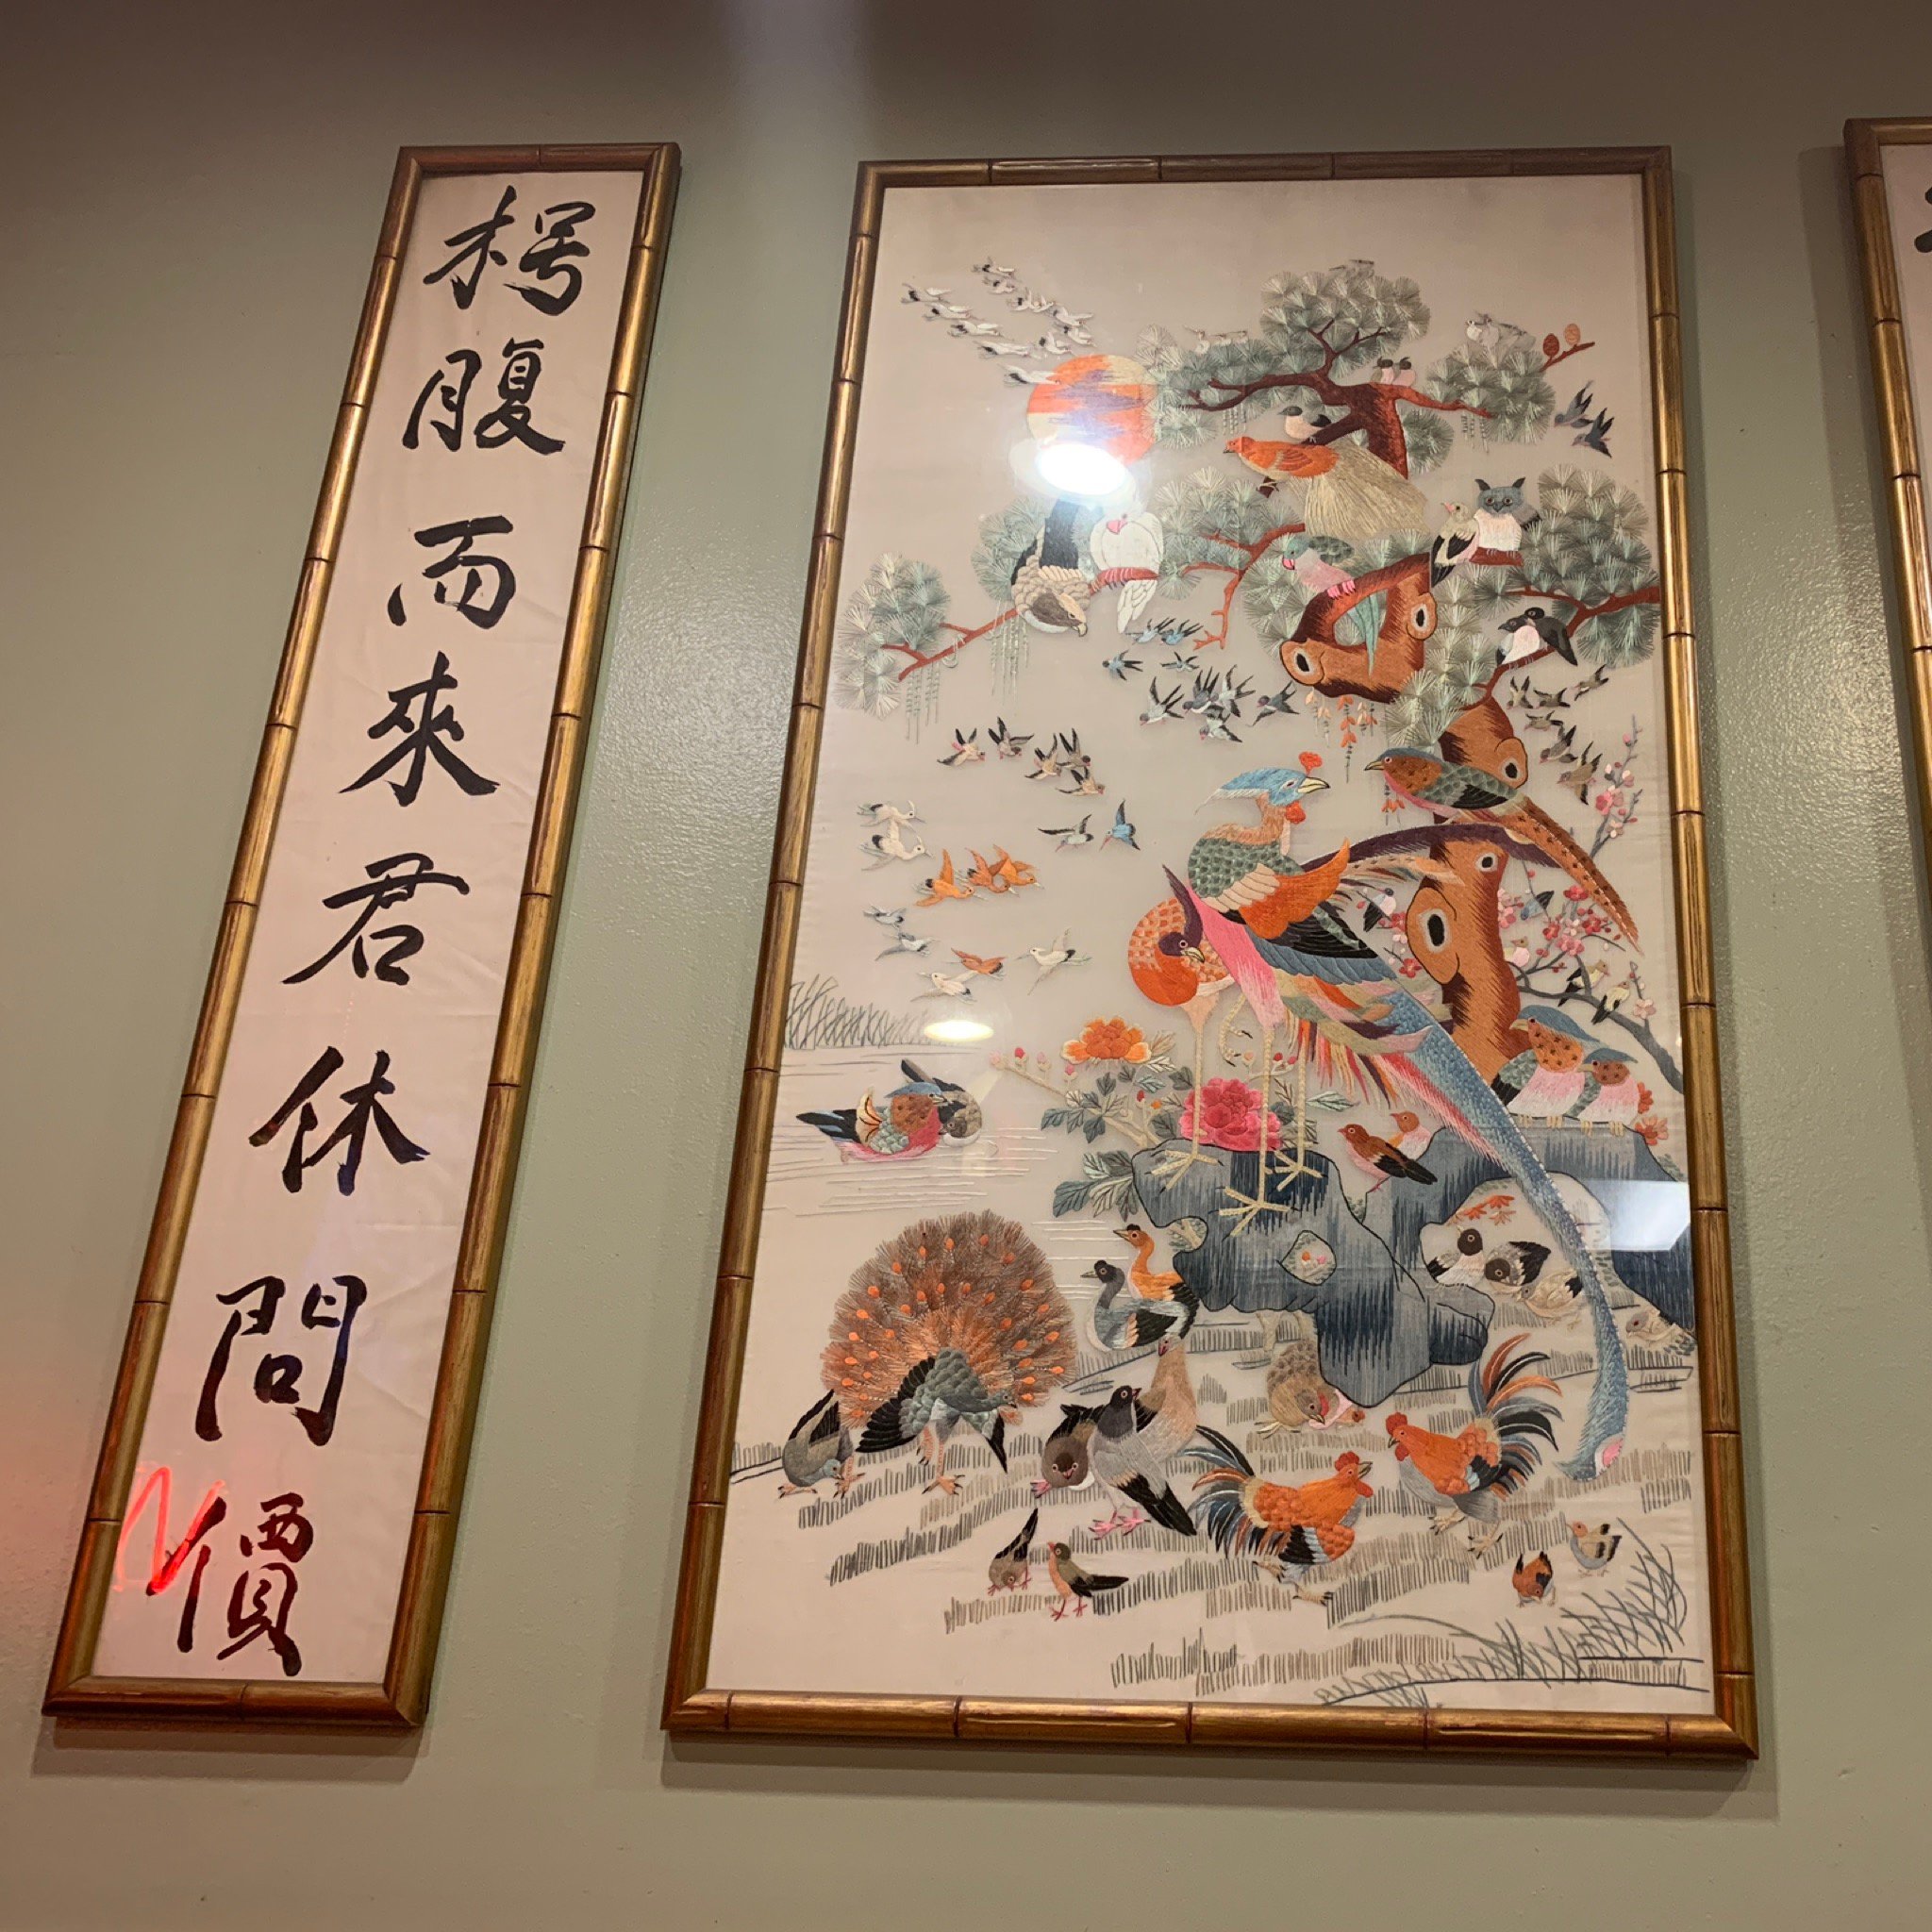 枵腹而來君休問價